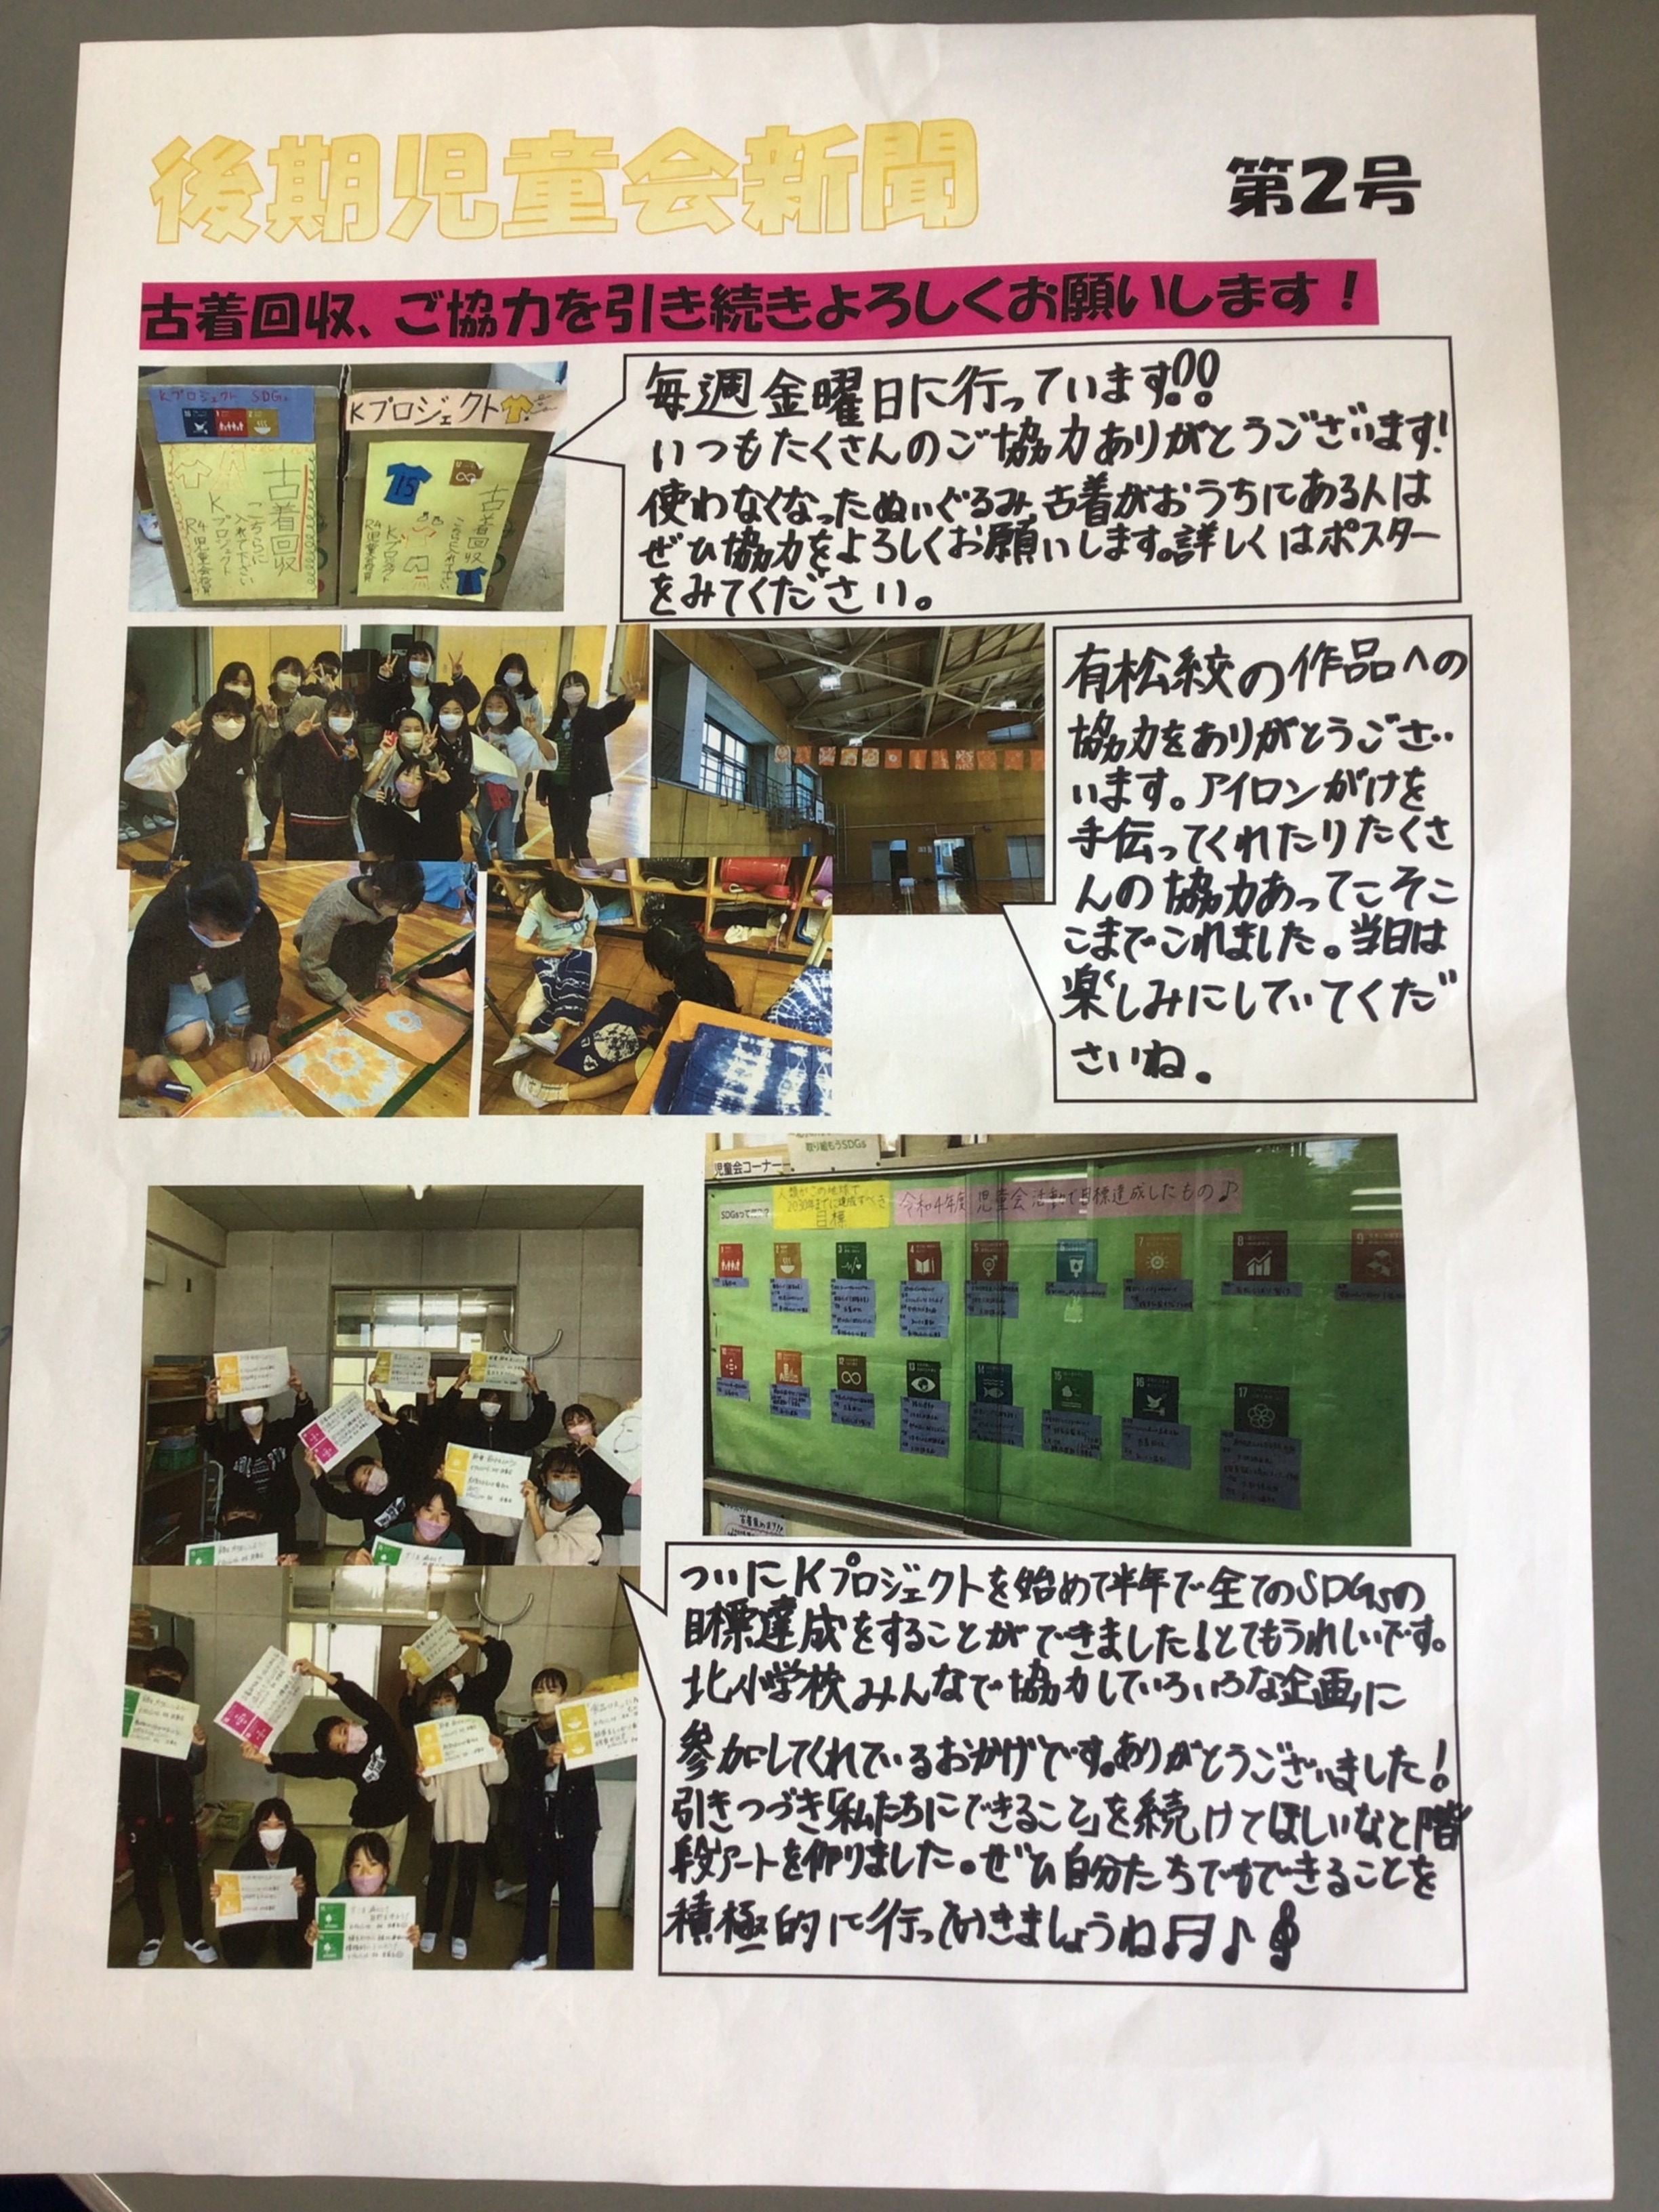 後期児童会新聞
第2号
古着回収、ご協力を引き続きよろしくお願いします！
Kプロジェクト SDGs
古着回収
こちらに
入れて下さい
Kプロジェクト
R4児童会役員
Kプロジェクト
15
古着回収
Kプロジェクト
R4児童会役員
毎週金曜日に行っています!!
いつもたくさんのご協力ありがとうございます!
使わなくなったぬいぐるみ、古着がおうちにある人は
ぜひ協力をよろしくお願いします。詳しくはポスター
をみてください。
有松絞の作品への
協力をありがとうござ
います。アイロンがけを
手伝ってくれたりたくさ
んの協力あってこそこ
こまでこれました。当日は
楽しみにしていてくだ
さいね。
取り組もうSDGs
児童会コーナー
SDGsって
人類がこの地球で
2030年までに達成すべき
目標
令和4年度 児童会活動で目標達成したもの♪
1
2
3
4
5
6
7
8
9
10
11
12
13
14
15
16
17
ついにKプロジェクトを始めて半年で全てのSDGsの
目標達成をすることができました!とてもうれしいです。
北小学校みんなで協力していろいろな企画に
参加してくれているおかげです。ありがとうございました!
引きつづき「私たちにできること」を続けてほしいなと階
段アートを作りました。ぜひ自分たちでもできることを
積極的に行っていきましょうね♬♪